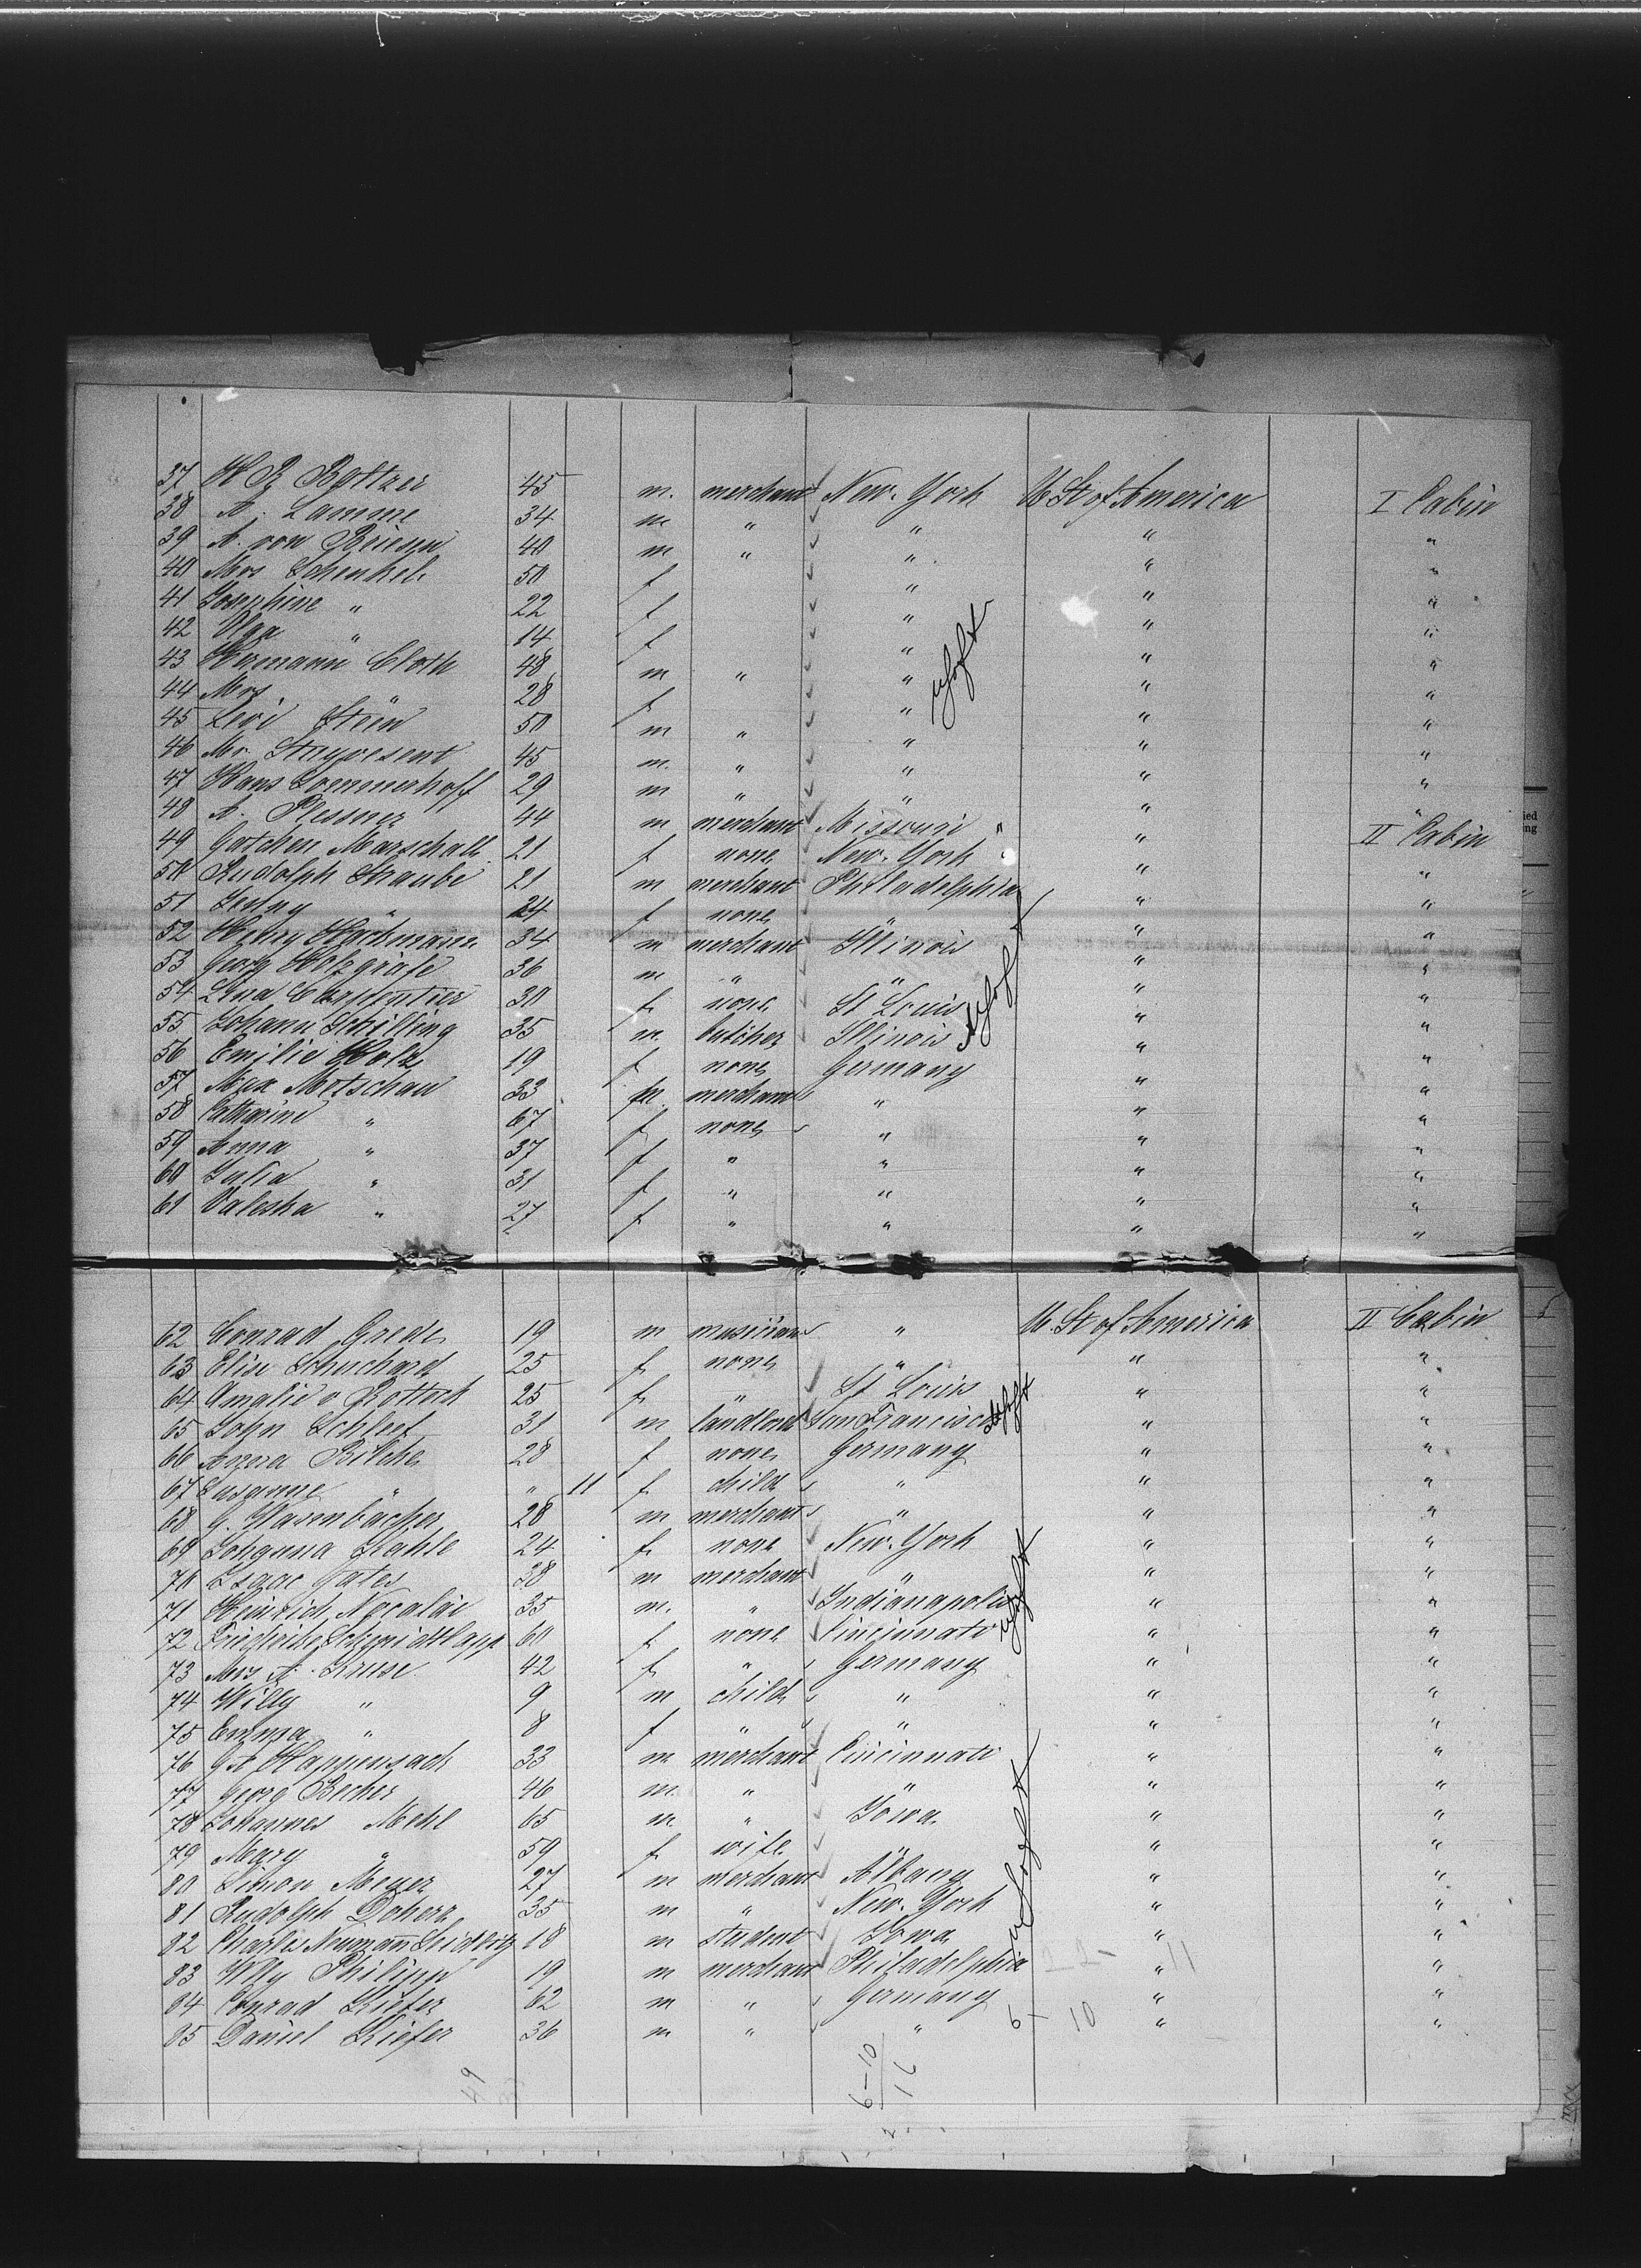 37 45 m. merchant New-York U. St of America I Cabin
38 A. Lamme 34 m " " " "
39 A. von Briesen 40 m " " " "
40 Mrs Schenkel 50 f " " "
41 Josephine " 22 f " " "
42 Olga " 14 f " " "
43 Hermann Cloth 48 m " " " "
44 Mrs " 28 f " " "
45 Levi Stein 50 m " " " "
46 Mr. Stuyvesent 45 m. " " " "
47 Hans Sommerhoff 29 m " " " "
48 A. Plessner 44 m merchant Missouri " II Cabin
49 Gatchen Marschall 21 f none New-York " "
50 Rudolph Straube 21 m merchant Philadelphia " "
51 Jenny " 24 f none " " "
52 Henry 34 m merchant Illinois " "
53 Georg Holzgräfe 36 m " " " "
54 Lina Carpentier 30 f none St Louis " "
55 Johann Schilling 35 m. butcher Illinois " "
56 Emilie Holz 19 f none Germany " "
57 Max Motschau 33 m. merchant " " "
58 Catharine " 67 f none " " "
59 Anna " 37 f " " " "
60 Julia " 31 f " " " "
61 Valeska " 27 f " " " "
62 Conrad Grede 19 m musician " U. St of America II Cabin
63 Elise Schuchard 25 f none " " "
64 Amalie v Rotteck 25 f " St Louis " "
65 John Schleef 31 m landlord San Francisco " "
66 Anna 28 f none Germany " "
67 Susanne " " 11 f child " " "
68 G. 28 m merchant " " "
69 Johanna Stahle 24 f none New-York " "
70 Isaac Gates 38 m merchant " " "
71 Heinrich Nocalai 35 m. " Indianapolis " "
72 Friederike Schmidtlapp 60 f none Cincinnati " "
73 Mrs A. Kruse 42 f " Germany " "
74 Willy " 9 m child " " "
75 Emma " 8 f " " " "
76 G A Happersack 33 m merchant Cincinnati " "
77 Georg Becker 46 m. " " " "
78 Johannes Mehl 65 m. " Iowa " "
79 Mary " 59 f wife " " "
80 Simon Meyer 27 m merchant Albany " "
81 Rudolph 35 m " New-York " "
82 Charles Neumann 18 m student Iowa " "
83 Wlly Philipp 19 m merchant Philadelphia 22- " 11 "
84 Conrad Kiefer 62 m " Germany " "
85 Daniel Kiefer 36 m " " 6 10 " "
49
6-10
16